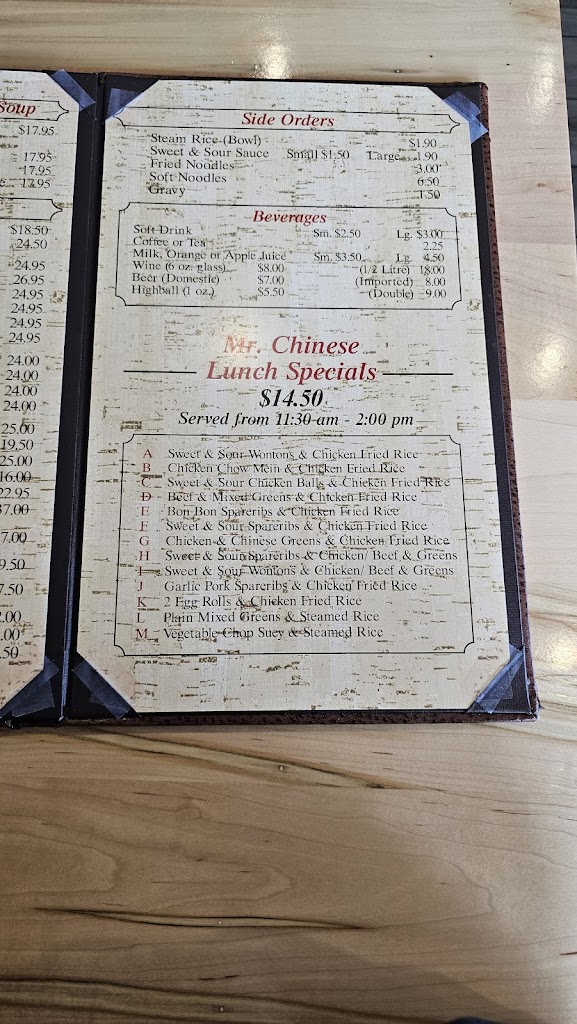 Soup
$17.95
17.95
17.95
17.95
$18.50
24.50
24.95
26.95
24.95
24.95
24.95
24.95
24.00
24.00
24.00
24.00
25.00
19.50
25.00
16.00
22.95
37.00
7.00
9.50
7.50
2.00
.00
.50
Side Orders
Steam Rice (Bowl) $1.90
Sweet & Sour Sauce Small $1.50 Large 1.90
Fried Noodles 3.00
Soft Noodles 6.50
Gravy 1.50
Beverages
Soft Drink Sm. $2.50 Lg. $3.00
Coffee or Tea 2.25
Milk, Orange or Apple Juice Sm. $3.50 Lg. 4.50
Wine (6 oz. glass) $8.00 (1/2 Litre) 18.00
Beer (Domestic) $7.00 (Imported) 8.00
Highball (1 oz.) $5.50 (Double) 9.00
Mr. Chinese
Lunch Specials
$14.50
Served from 11:30 am - 2:00 pm
A Sweet & Sour Wontons & Chicken Fried Rice
B Chicken Chow Mein & Chicken Fried Rice
C Sweet & Sour Chicken Balls & Chicken Fried Rice
D Beef & Mixed Greens & Chicken Fried Rice
E Bon Bon Spareribs & Chicken Fried Rice
F Sweet & Sour Spareribs & Chicken Fried Rice
G Chicken & Chinese Greens & Chicken Fried Rice
H Sweet & Sour Spareribs & Chicken/ Beef & Greens
I Sweet & Sour Wontons & Chicken/ Beef & Greens
J Garlic Pork Spareribs & Chicken Fried Rice
K 2 Egg Rolls & Chicken Fried Rice
L Plain Mixed Greens & Steamed Rice
M Vegetable Chop Suey & Steamed Rice